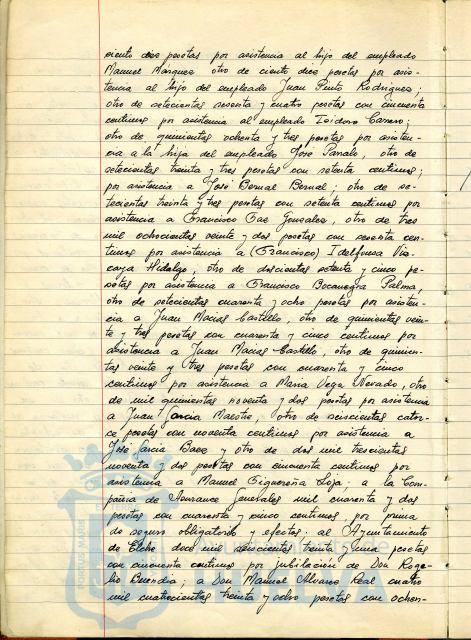 ciento doce pesetas por asistencia al hijo del empleado
Manuel Márquez otro de ciento doce pesetas por asis-
tencia al hijo del empleado Juan Pinto Rodríguez;
otro de setecientas sesenta y cuatro pesetas con cincuenta
centimos por asistencia al empleado Isidoro
otro de quinientas ochenta y tres pesetas por asisten-
cia a la hija del empleado José otro de
setecientas treinta y tres pesetas con setenta centimos;
por asistencia a José Bernal Bernal; otro de se-
tecientas treinta y tres pesetas con setenta centimos por
asistencia a Francisco Gonzalez, otro de tres
mil ochocientas veinte y dos pesetas con sesenta cen-
timos por asistencia a (Francisco) Idelfonsa Viz-
caya Hidalgo, otro de doscientas setenta y cinco pe-
setas por asistencia a Francisco Bocanegra Palma,
otro de setecientas cuarenta y ocho pesetas por asisten-
cia a Juan Macias Castillo, otro de quinientas vein-
te y tres pesetas con cuarenta y cinco centimos por
asistencia a Juan Macias Castillo, otro de quinien-
tas veinte y tres pesetas con cuarenta y cinco
centimos por asistencia a Maria Vega Nevado, otro
de mil quinientas noventa y dos pesetas por asistencia
a Juan Garcia Maestre, otro de seiscientas cator-
ce pesetas con noventa centimos por asistencia a
José Garcia Baez y otro de dos mil trescientas
noventa y dos pesetas con cincuenta centimos por
asistencia a Manuel Figueroa a la Com-
pañia de Seurance Generales mil cuarenta y dos
pesetas con cuarenta y cinco centimos por prima
de seguro obligatorio y efectos: al Ayuntamiento
de Elche doce mil seiscientas treinta y una pesetas
con cincuenta centimos por jubilación de Don Roge-
lio Buendia; a Don Manuel Alvarez Real cuatro
mil cuatrocientas treinta y ocho pesetas con ochen-